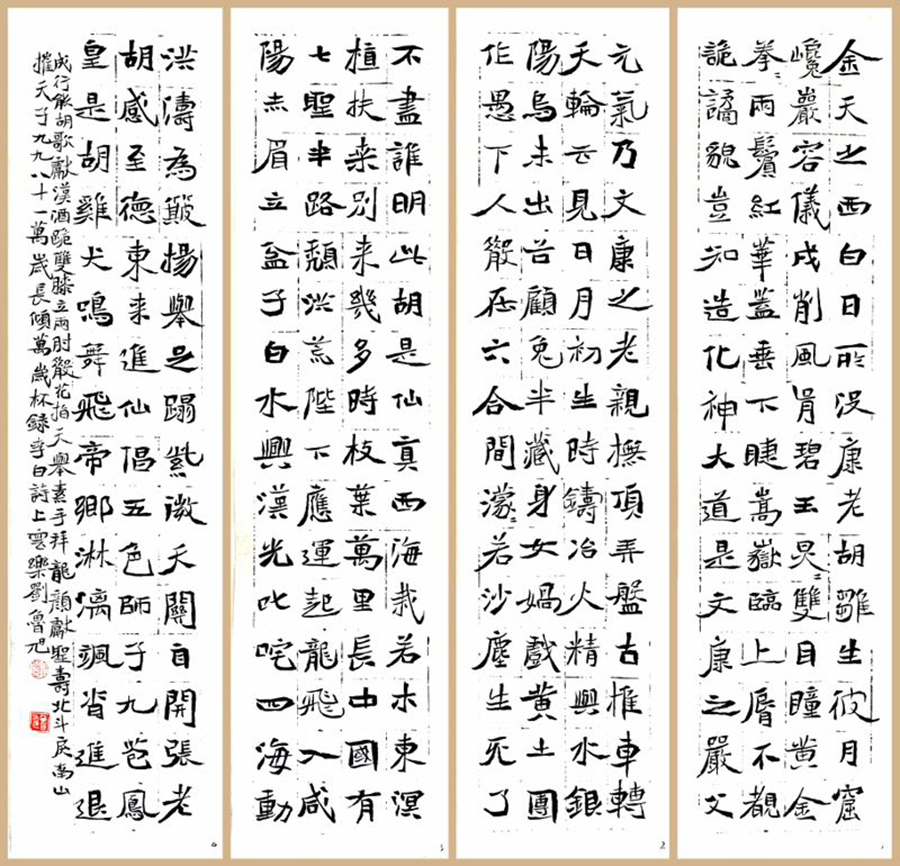 金天之西白日所没康老胡雛生彼月窟
巉巖容儀戍削風骨碧玉炅〻雙目瞳黃金
拳〻兩鬢紅華蓋垂下睫嵩嶽臨上脣不覩
詭譎貌豈知造化神大道是文康之嚴父
元氣乃文康之老親撫頂弄盤古推車轉
天輪云見日月初生時鑄冶火精興水銀
陽烏未出谷顧兔半藏身女媧戲黃土團
作愚下人散在六合間濛〻若沙塵生死了
不盡誰明此胡是仙真西海栽若木東溟
植扶桒别来幾多時枝葉萬里長中國有
七聖半路頹洪荒陛下應運起龍飛入咸
陽赤眉立盆子白水興漢光叱咤四海動
洪濤為簸揚舉足蹋紫微天關自開張老
胡感至德東来進仙倡五色師子九苞鳳
皇是胡雞犬鳴舞飛帝鄉淋漓颯沓進退
成行能胡歌獻漢酒跪雙膝立兩肘散花指天舉素手拜龍顏獻聖壽北斗戾南山
摧天子九九八十一萬歲長傾萬歲杯録李白詩上雲樂劉魯旭